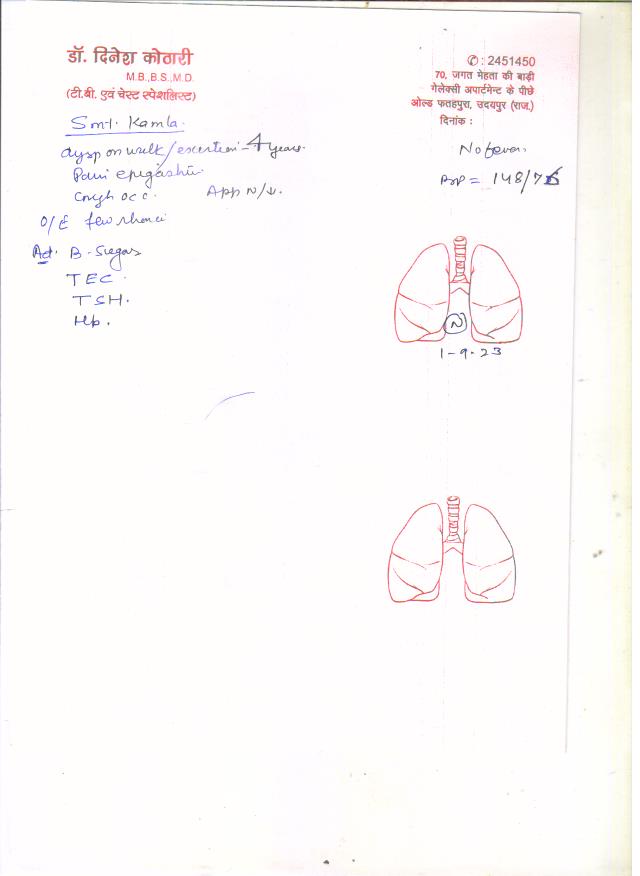 डॉ. दिनेश कोठारी
M.B.,B.S.,M.D.
(टी.बी. एवं चेस्ट स्पेशलिस्ट)
✆ : 2451450
70, जगत मेहता की बाड़ी
गेलेक्सी अपार्टमेन्ट के पीछे
ओल्ड फतहपुरा, उदयपुर (राज.)
दिनांक :
Smt. Kamla.
dysp on walk/exertion - 4 years.
Pain epigastric
Cough occ. App N/↓.
O/E few rhonci
No fever.
BP = 148/76
Ad. B-Sugar
TEC.
TSH.
Hb.
N
1-9-23